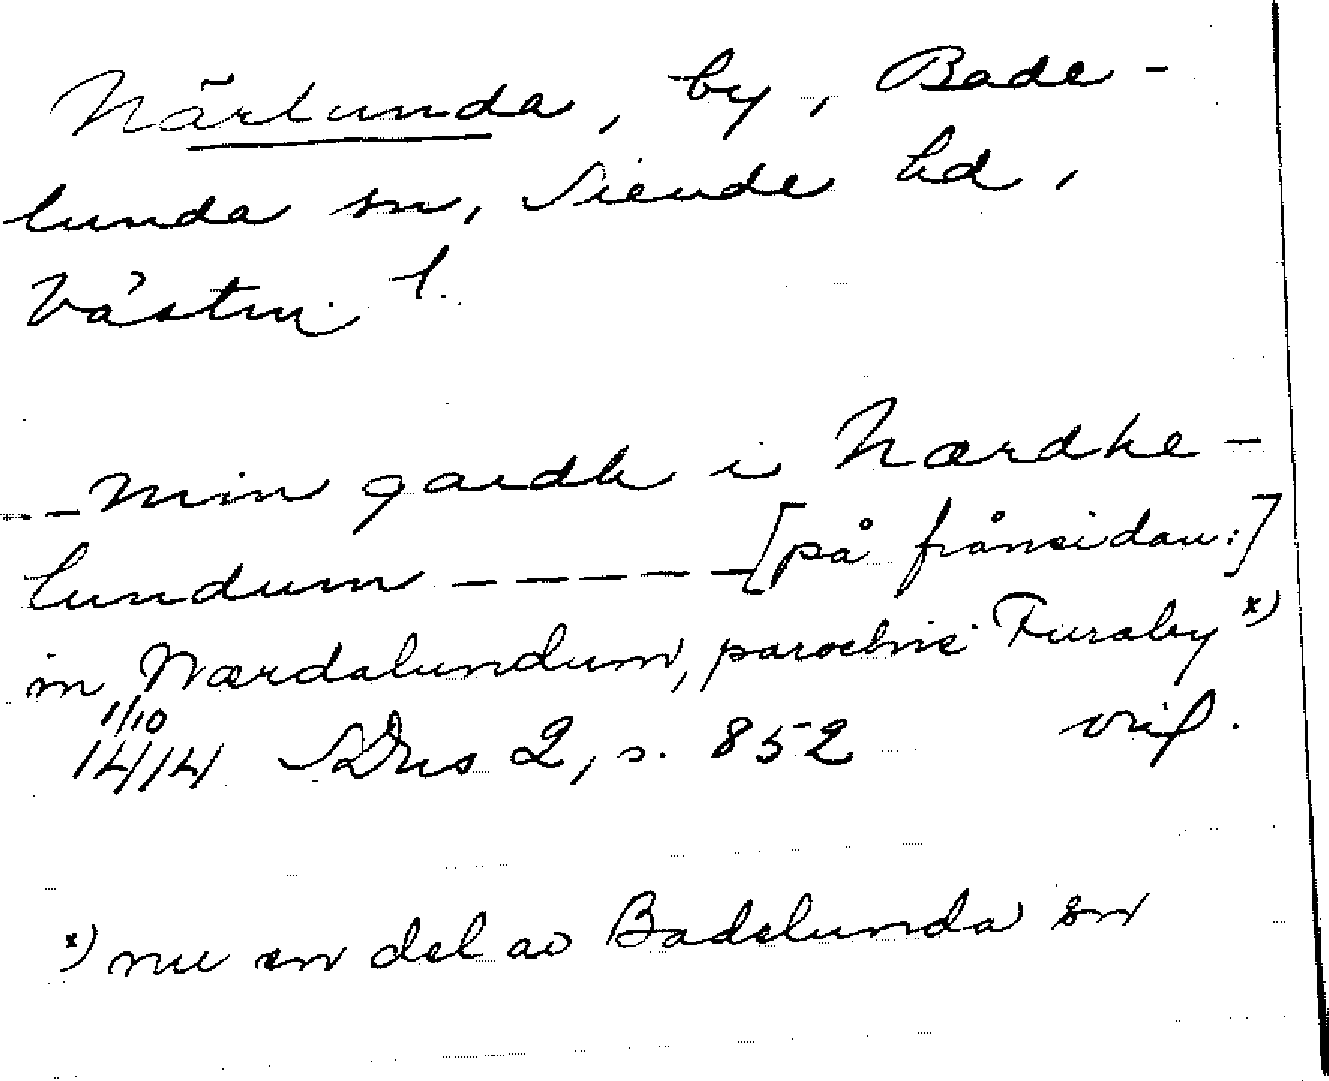 Närlunda, by, Bade-
lunda sn, Siende hd,
Västm. l.
--- min gardh i Nærdhe-
lundum ----- [på frånsidan:]
in Nærdalundum, parochie Furaby x)
1/10
1414 SDns 2, s. 852 orig.
x) nu en del av Badelunda sn